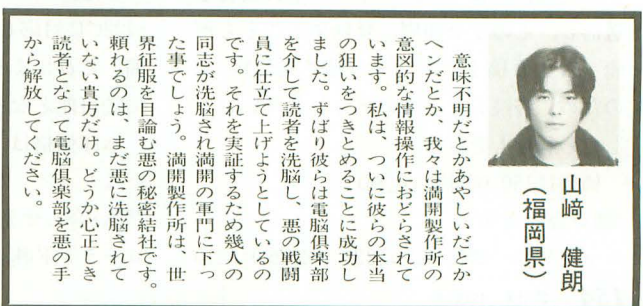 山﨑 健朗
(福岡県)
意味不明だとかあやしいだとか
ヘンだとか、我々は満開製作所の
意図的な情報操作におどらされて
います。私は、ついに彼らの本当
の狙いをつきとめることに成功し
ました。ずばり彼らは電脳倶楽部
を介して読者を洗脳し、悪の戦闘
員に仕立て上げようとしているの
です。それを実証するため幾人の
同志が洗脳され満開の軍門に下っ
た事でしょう。満開製作所は、世
界征服を目論む悪の秘密結社です。
頼れるのは、まだ悪に洗脳されて
いない貴方だけ。どうか心正しき
読者となって電脳倶楽部を悪の手
から解放してください。